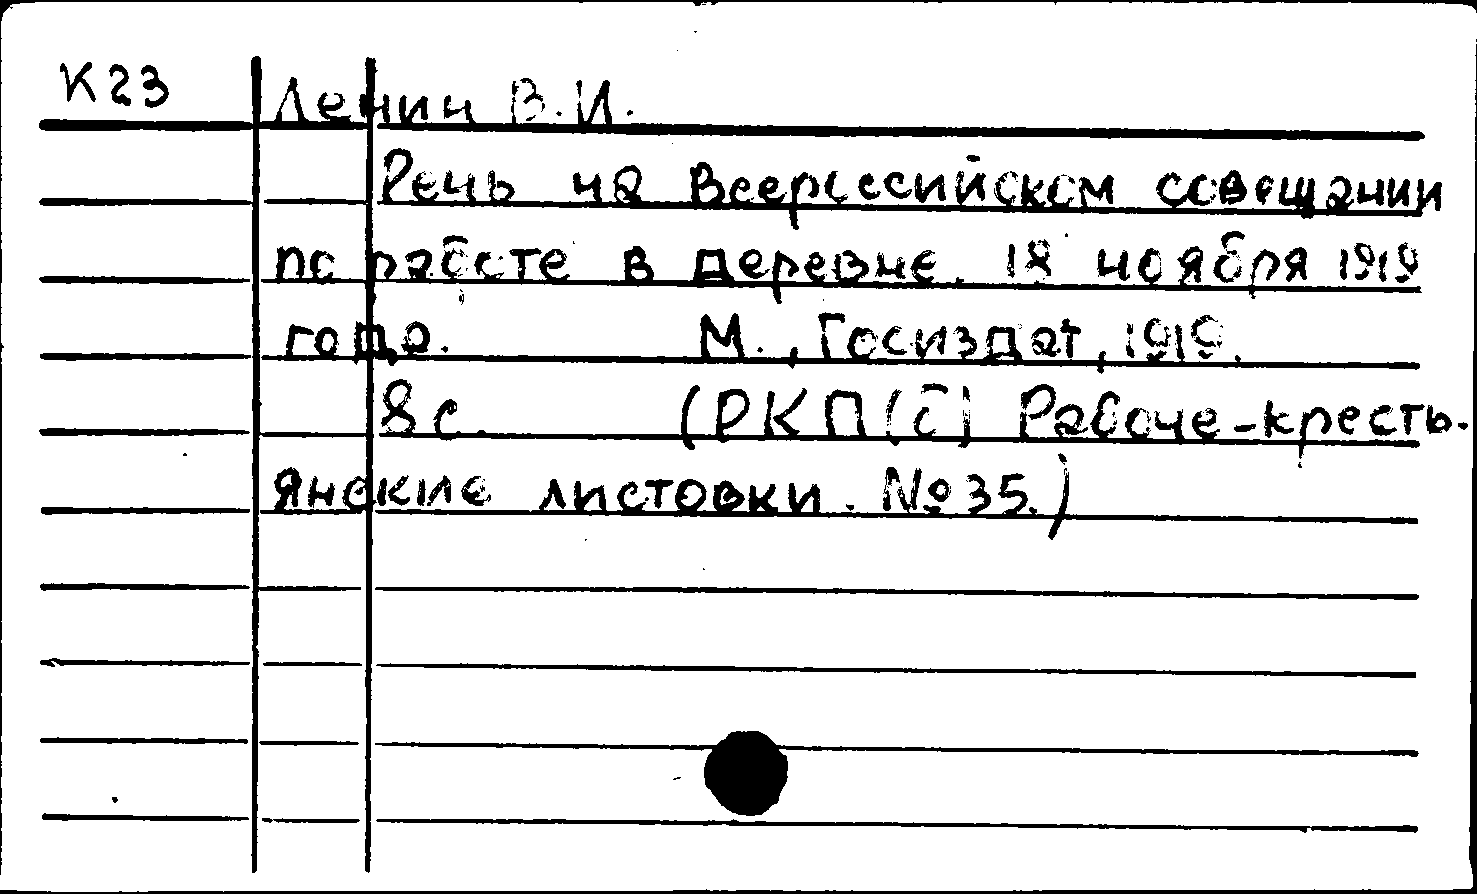 К23 Ленин В.И.
Речь на Всероссийском совещании
по работе в деревне. 18 ноября 1919
года. М., Госиздат, 1919.
8 с. (РКП(б) Рабоче-кресть-
янские листовки. №35.)